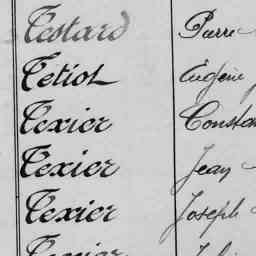 Testard Pierre
Tetiot Eugène
Texier
Texier Jean
Texier Joseph